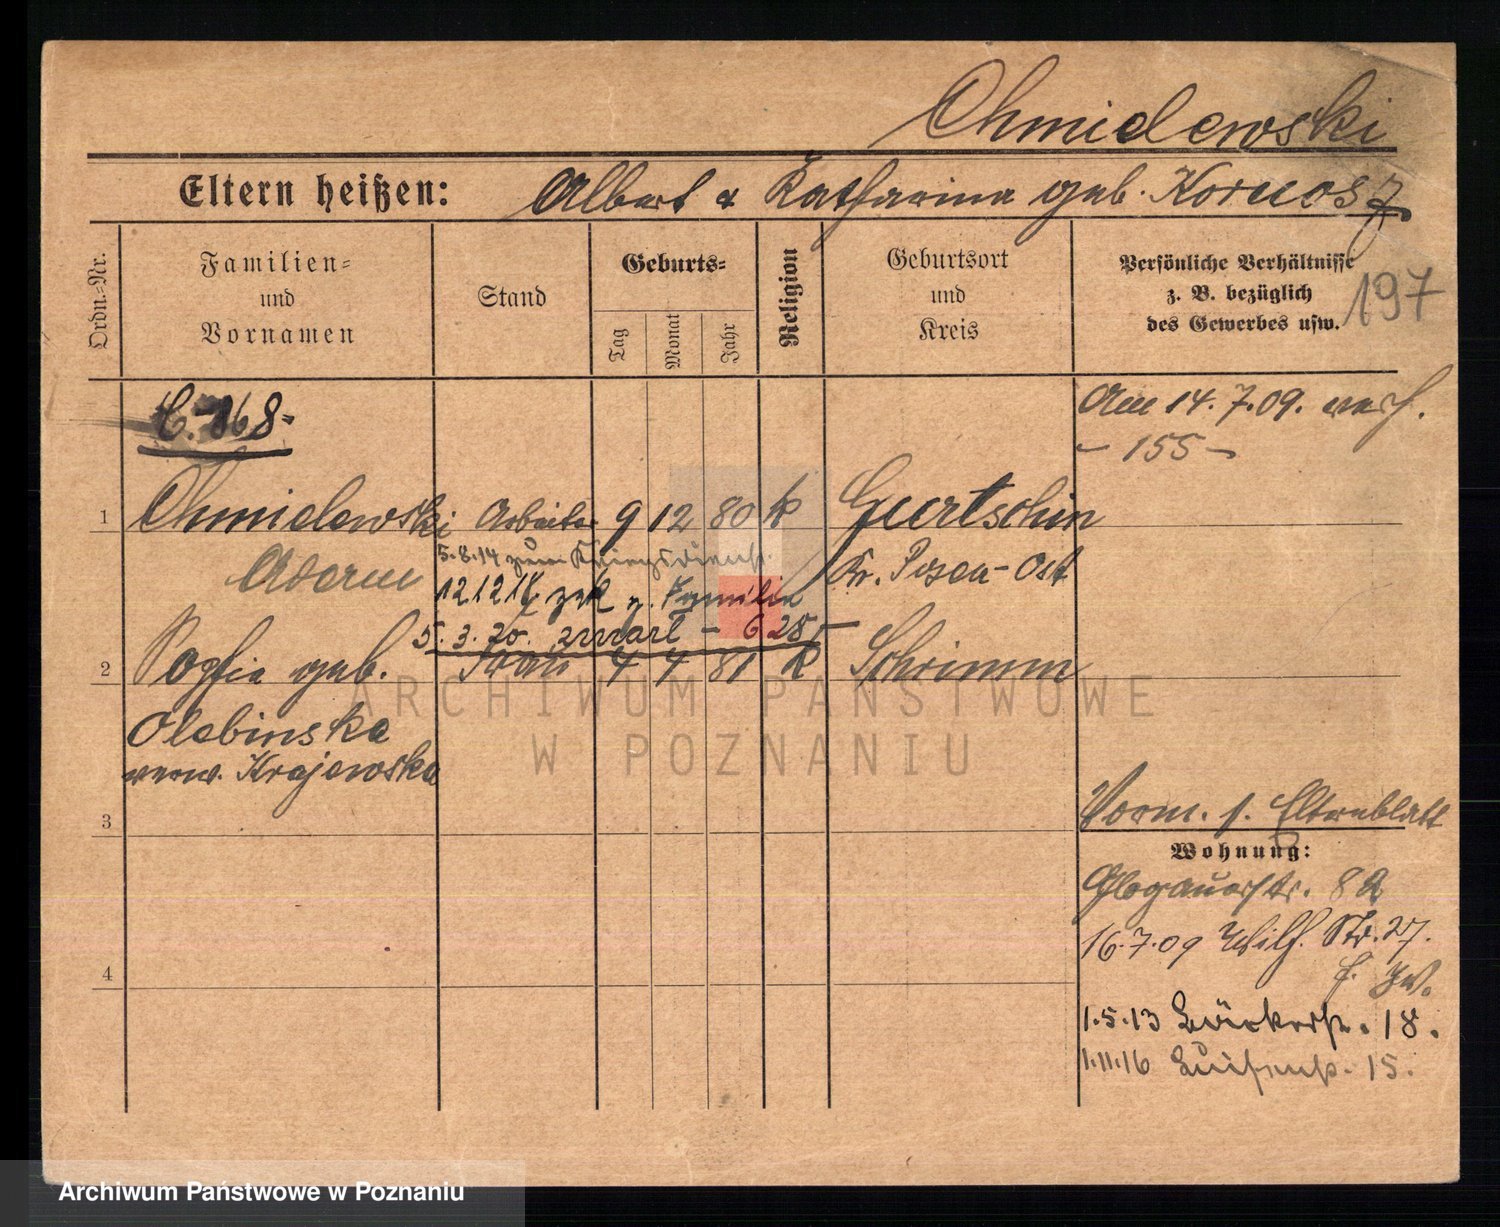 Chmielewski
Eltern heißen: Albert & Katharina geb. Kornosz
Ordn.-Nr.
Familien-
und
Vornamen
Stand
Geburts-
Tag
Monat
Jahr
Religion
Geburtsort
und
Kreis
Persönliche Verhältnisse
z. B. bezüglich
des Gewerbes usw.
197
C. 868-
Am 14.7.09. verh.
- 155 -
1 Chmielewski Arbeiter 9 12 80 k Gurtschin
5.8.14 zum Kriegsdienst.
Adam
Kr. Posen-Ost
12 12 18 zrk z. Familie
5.3.20.
2 Sophie geb. Frau 4 4 81 k Schrimm
Olebinska
verw. Krajewska
3
Vorm. s. Elternblatt
Wohnung:
Glogauerstr. 82
16.7.09 Wilh. Str. 27.
4
1.5.13 18.
1.11.16 Luisenstr. 15.
ARCHIWUM PAŃSTWOWE
W POZNANIU
Archiwum Państwowe w Poznaniu